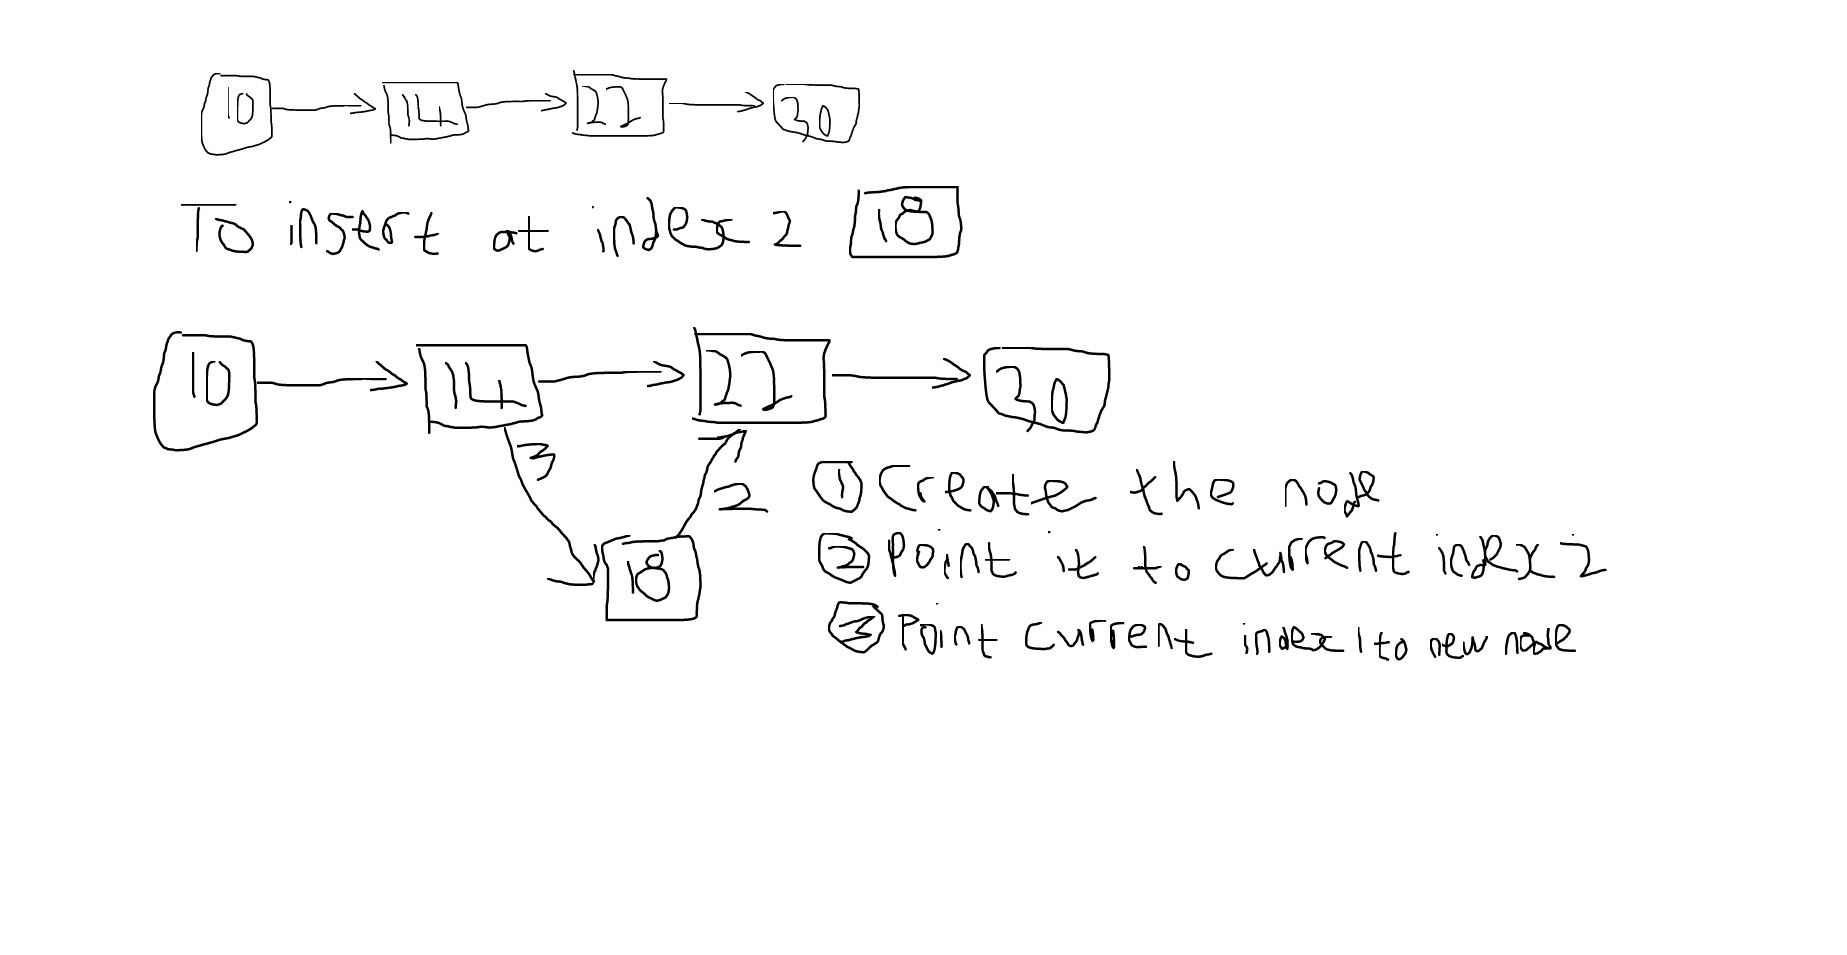 10 14 22 30
To insert at index 2 18
10 14 22 30
3 2
18
① Create the node
② Point it to current index 2
③ Point current index 1 to new node